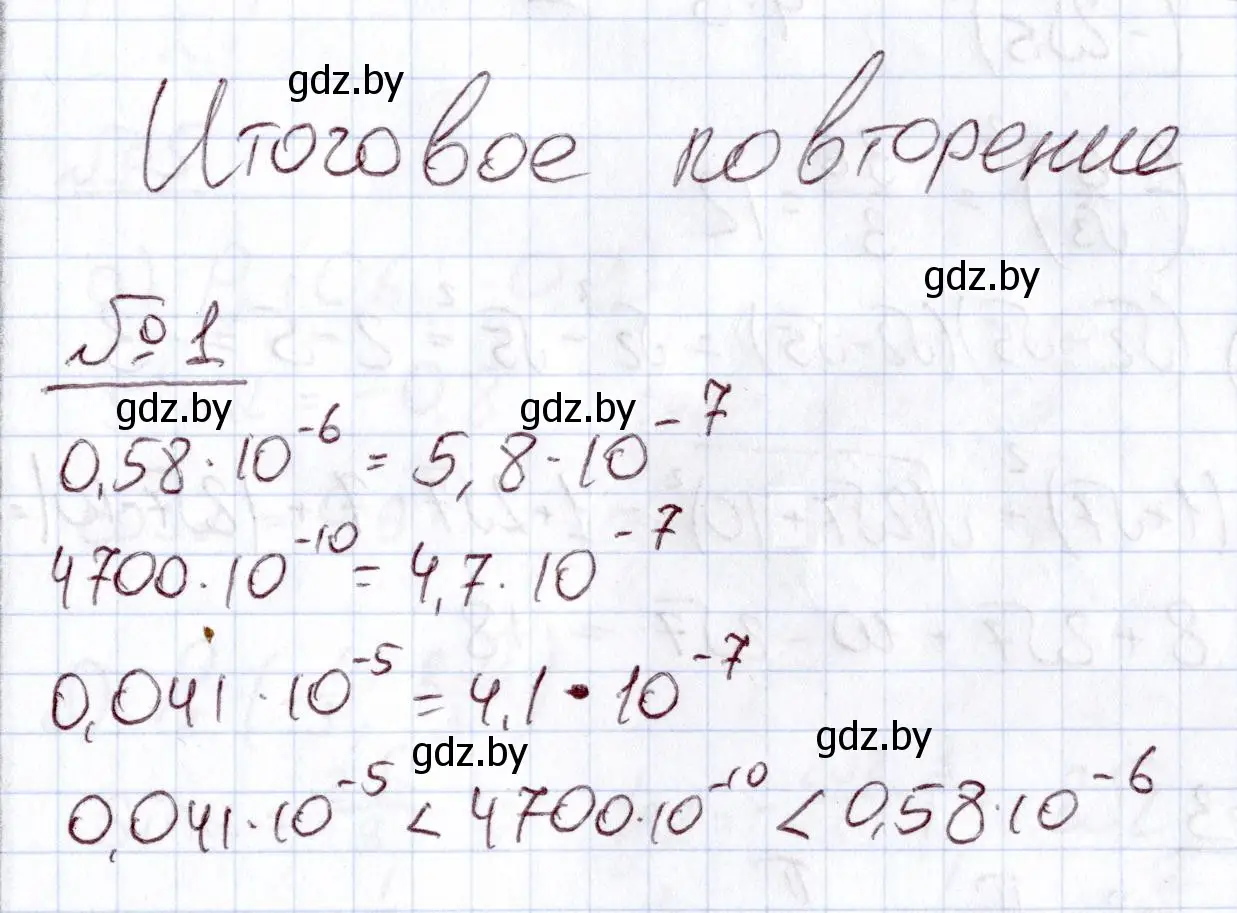 gdz.by
Итоговое повторение
gdz.by
№ 1
gdz.by gdz.by
0,58 · 10⁻⁶ = 5,8 · 10⁻⁷
4700 · 10⁻¹⁰ = 4,7 · 10⁻⁷
0,041 · 10⁻⁵ = 4,1 · 10⁻⁷
gdz.by gdz.by
0,041 · 10⁻⁵ < 4700 · 10⁻¹⁰ < 0,58 · 10⁻⁶